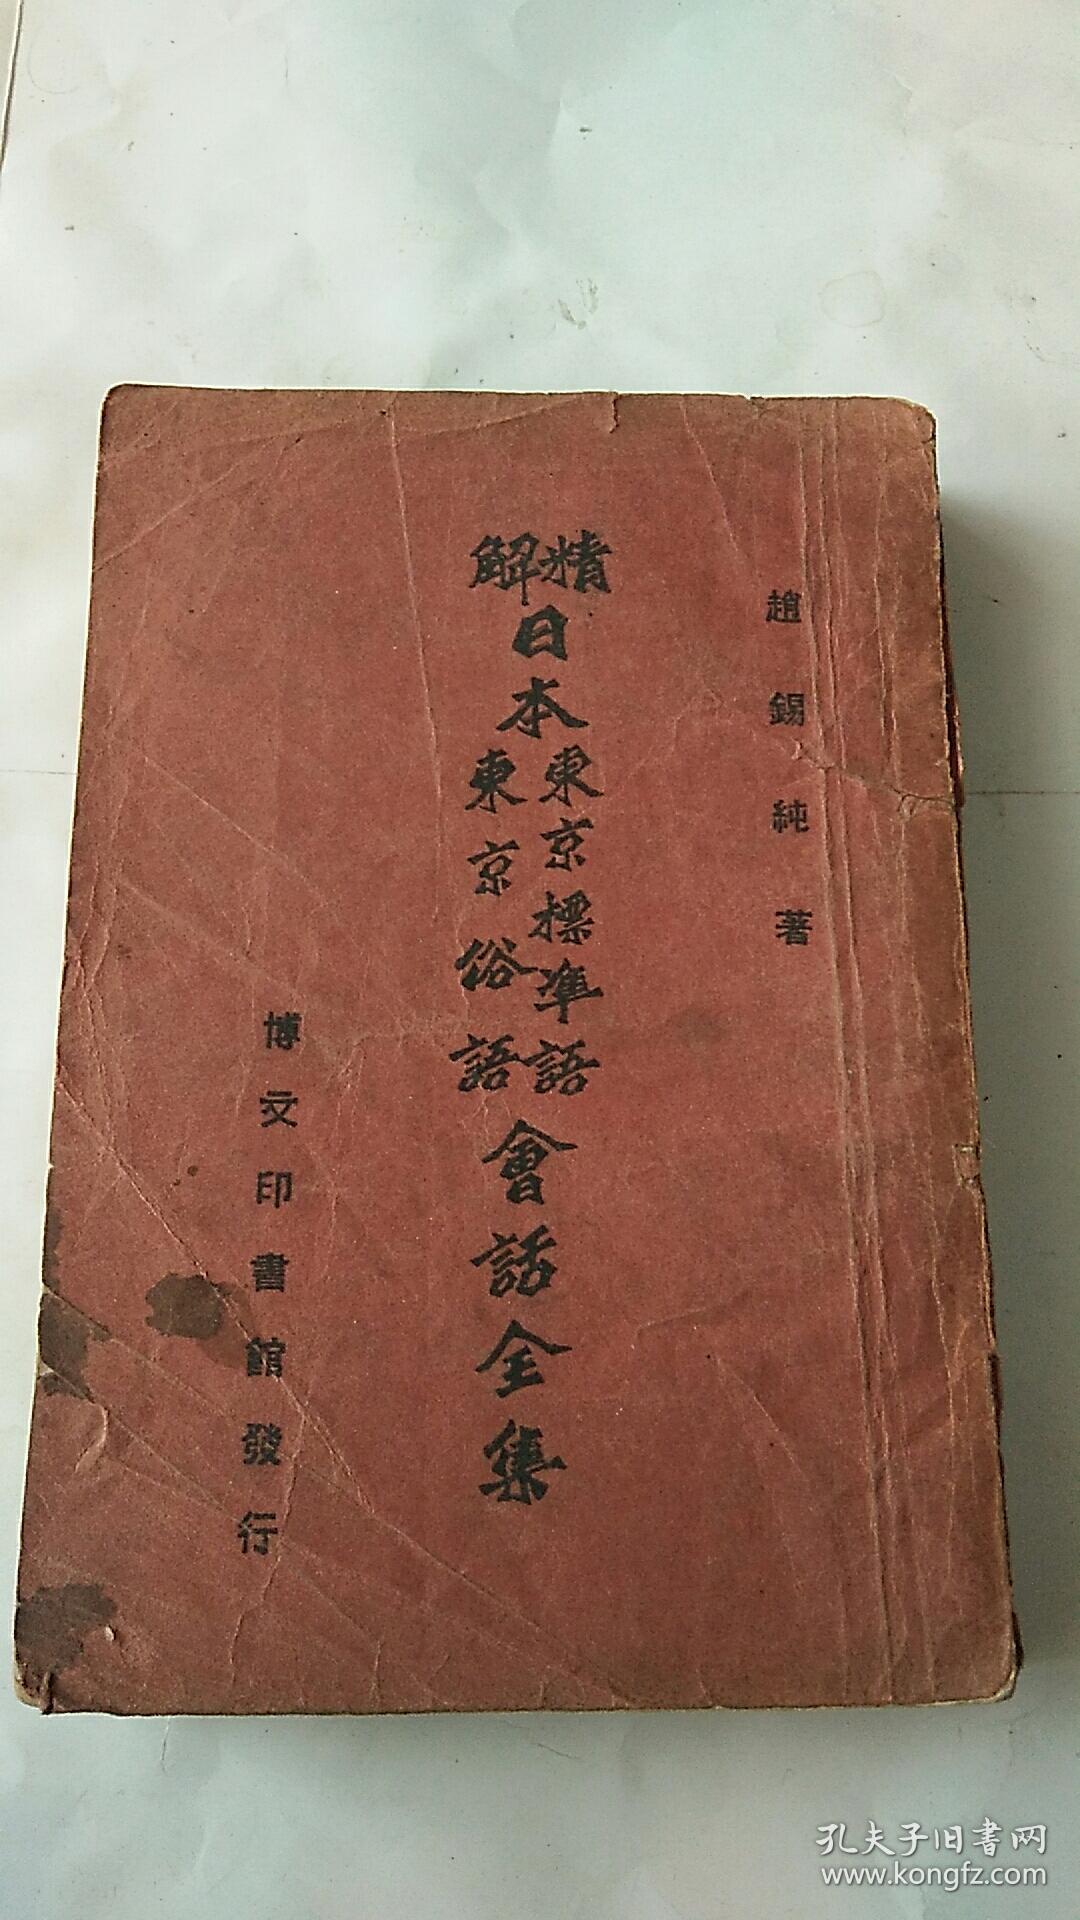 趙錫純著
精解日本東京標準語東京俗語會話全集
博文印書館發行
孔夫子旧书网
www.kongfz.com